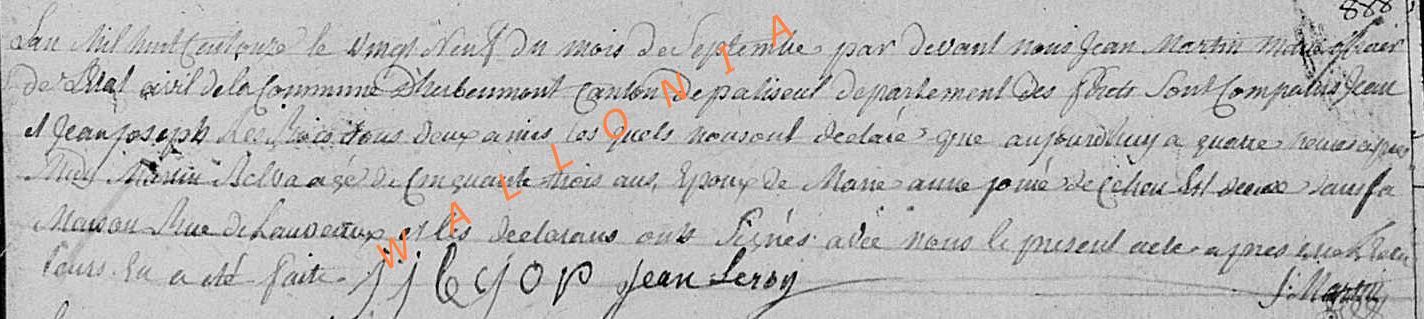 888
Lan Mil huit Cent onze le vingt Neuf du mois de Septembre par devant nous Jean Martin Maire officier
de L'Etat civil de la Commune D'herbeumont Canton De paliseul departement des forets Sont Comparus Jean
et Jean Joseph Les tous deux amis les quels nous ont declaré que aujourdhuy a quatre heures apres
Midy Martin Belva agé de Cinquante trois ans, Epoux de Marie anne de Ce lieu Est decedé dans sa
Maison Rue de et les declarans onts Signés avec nous le present acte apres que Lecture
Leurs En a été faite jj le jop jean Leroy J: Martin
WALLONIA